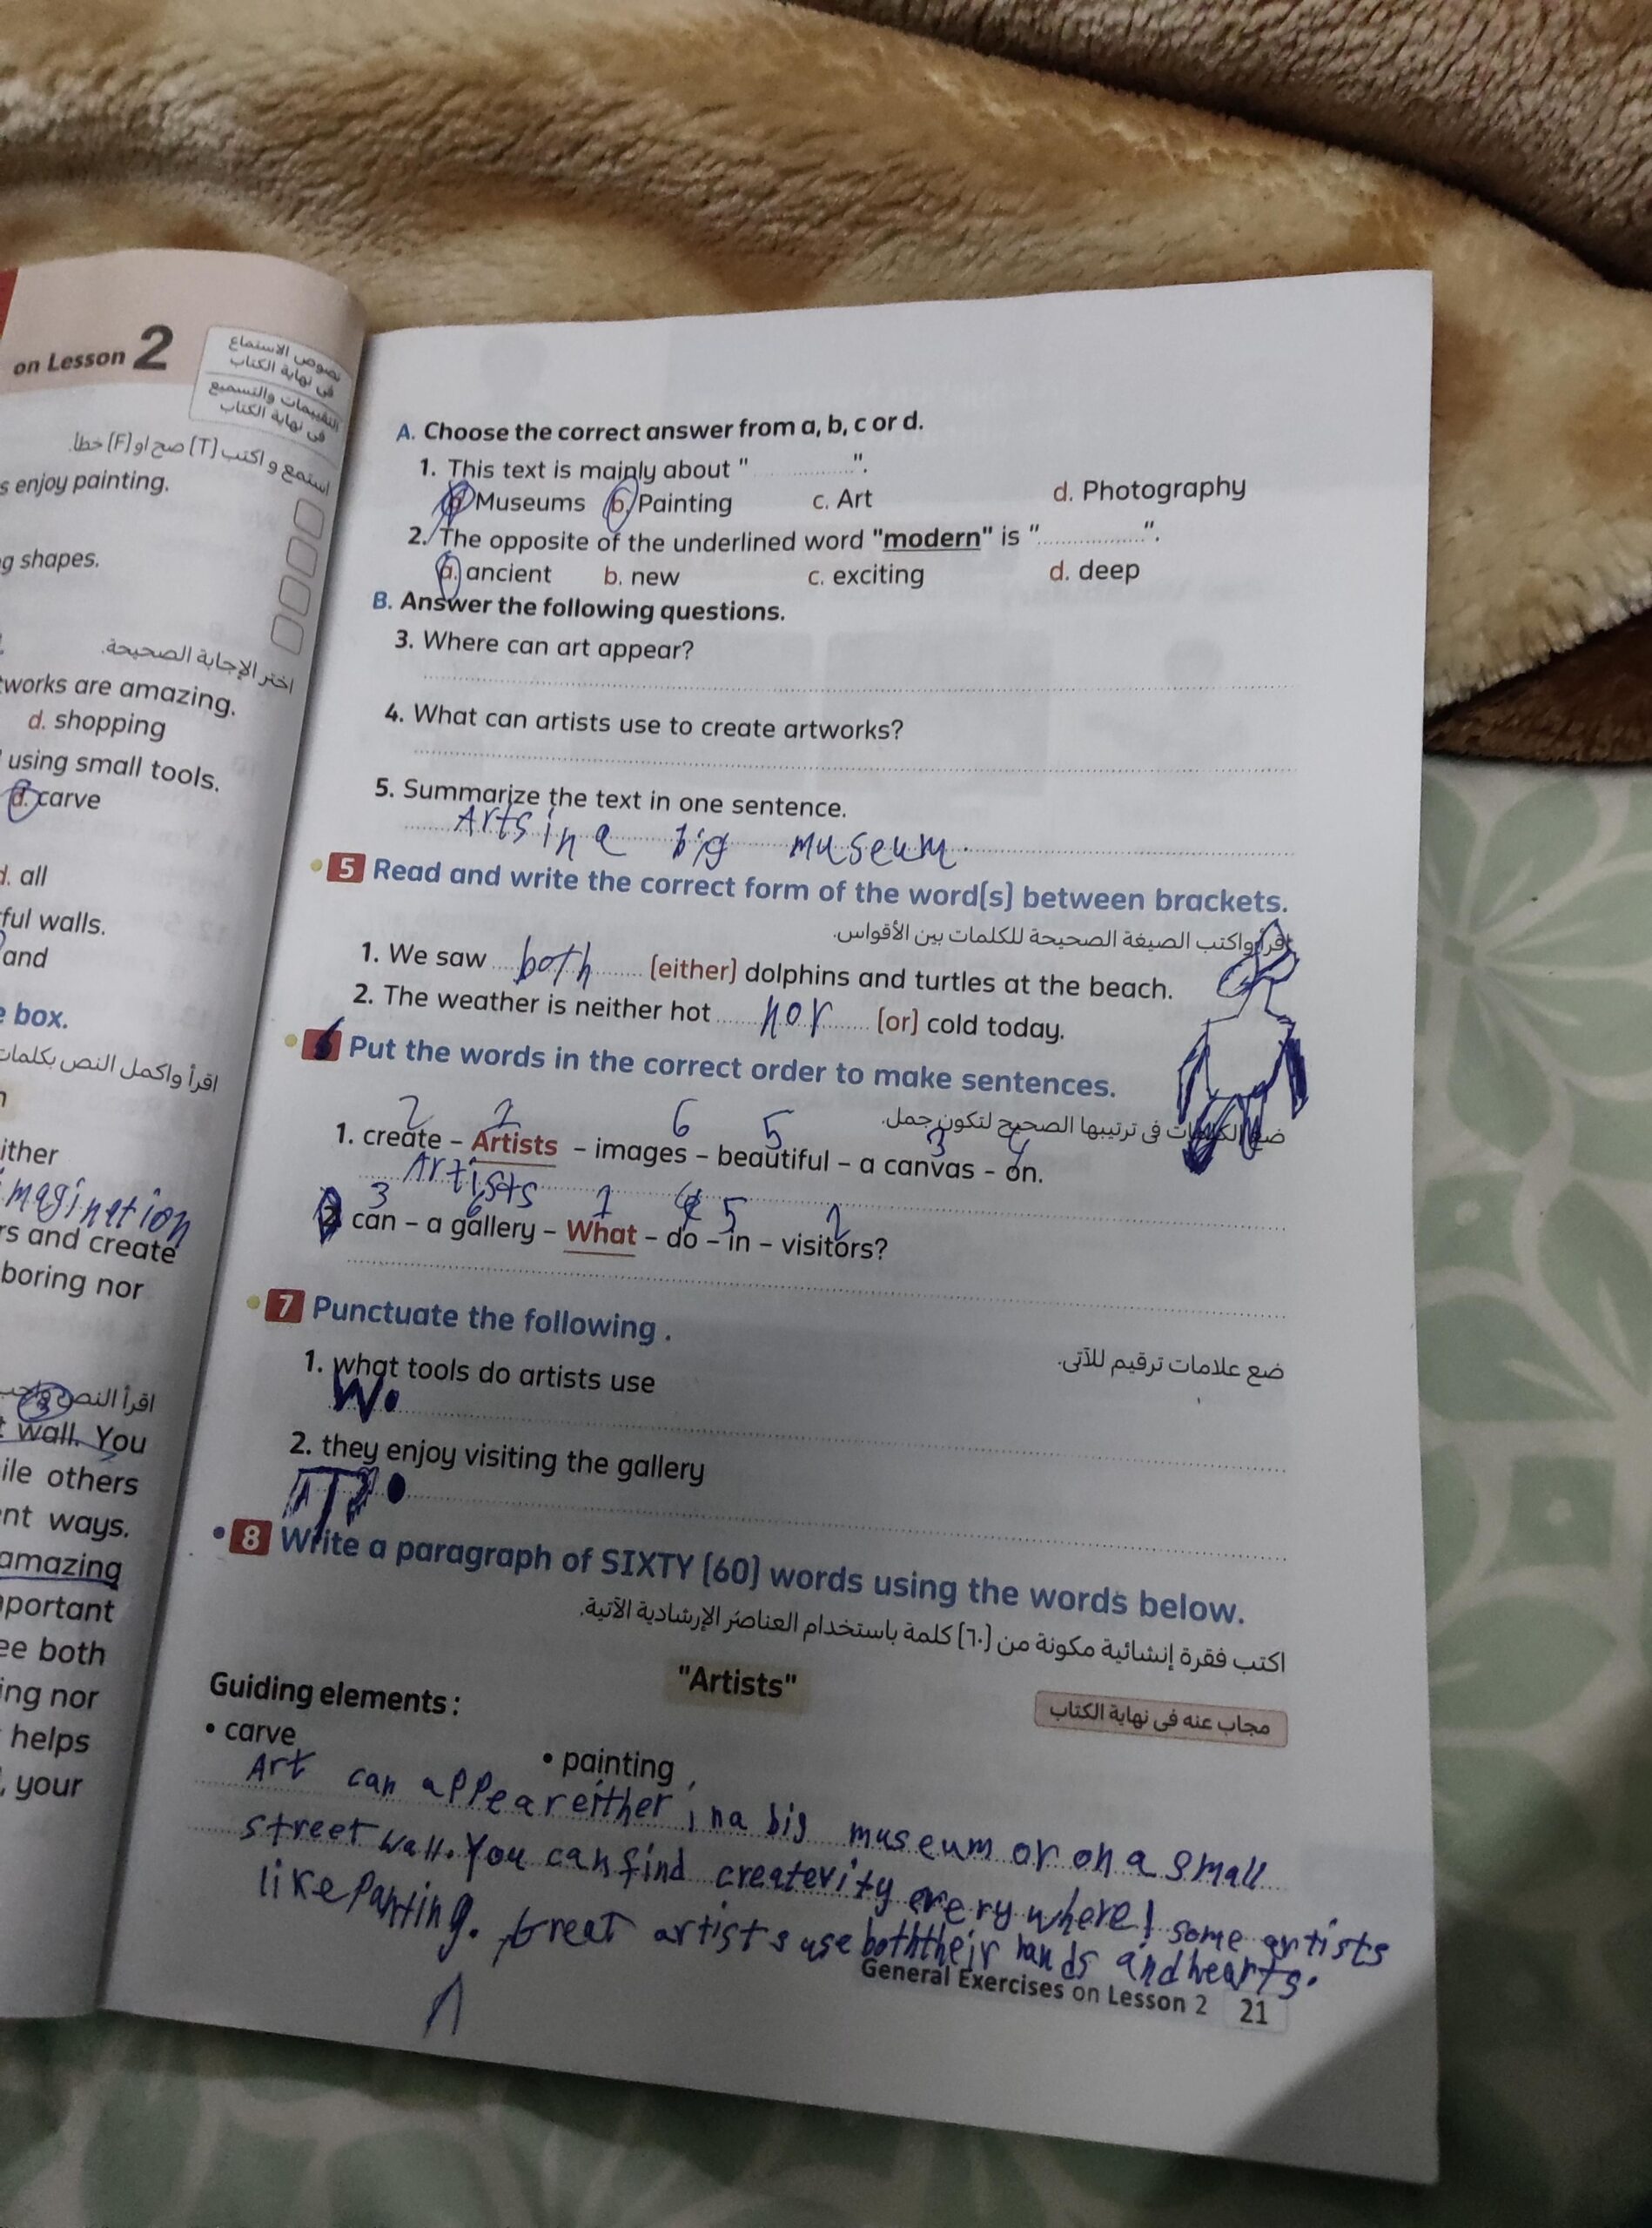 on Lesson 2
نصوص الاستماع
فى نهاية الكتاب
التقييمات والتسميع
فى نهاية الكتاب
استمع و اكتب (T) صح او (F) خطأ.
s enjoy painting.
g shapes.
اختر الإجابة الصحيحة.
works are amazing.
d. shopping
using small tools.
d. carve
d. all
ful walls.
and
box.
اقرأ واكمل النص بكلمات
ither
imaginetion
rs and create
boring nor
اقرأ النص
t wall. You
ile others
nt ways.
amazing
portant
ee both
ing nor
helps
, your
A. Choose the correct answer from a, b, c or d.
1. This text is mainly about " ............ ".
a. Museums b. Painting c. Art d. Photography
2. The opposite of the underlined word "modern" is "..................".
a. ancient b. new c. exciting d. deep
B. Answer the following questions.
3. Where can art appear?
4. What can artists use to create artworks?
5. Summarize the text in one sentence.
Arts in a big museum.
5 Read and write the correct form of the word(s) between brackets.
اقرأ واكتب الصيغة الصحيحة للكلمات بين الأقواس.
1. We saw both (either) dolphins and turtles at the beach.
2. The weather is neither hot nor (or) cold today.
6 Put the words in the correct order to make sentences.
ضع الكلمات فى ترتيبها الصحيح لتكون جمل.
2 1 6 5 3 4
1. create – Artists – images – beautiful – a canvas – on.
Artists
3 6 1 4 5 2
2. can – a gallery – What – do – in – visitors?
7 Punctuate the following .
ضع علامات ترقيم للآتى.
1. what tools do artists use
W.
2. they enjoy visiting the gallery
T .
8 Write a paragraph of SIXTY (60) words using the words below.
اكتب فقرة إنشائية مكونة من (٦٠) كلمة باستخدام العناصر الإرشادية الآتية.
"Artists"
Guiding elements :
مجاب عنه فى نهاية الكتاب
• carve • painting
Art can appear either in a big museum or on a small
street wall. You can find createvity every where! some artists
like Panting. Great artists use both their hands and hearts.
General Exercises on Lesson 2 21